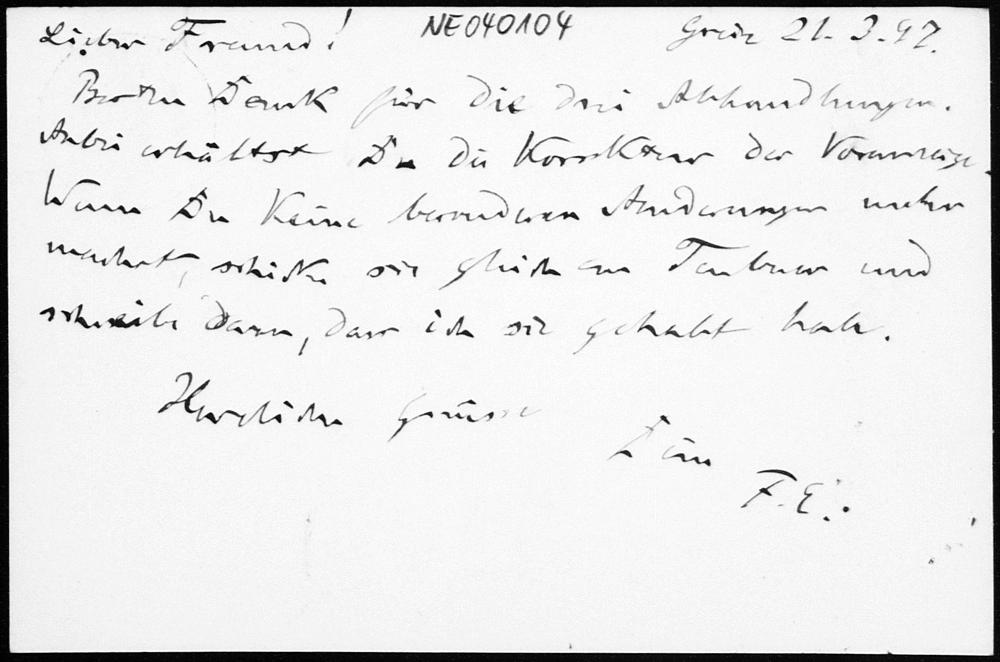 Lieber Freund! NE040104 Graz 21. 3. 97.
Besten Dank für die drei Abhandlungen.
Anbei erhältst Du die Korrektur der Voranzeige.
Wenn Du keine besonderen Änderungen mehr
machst, schicke sie gleich an Teubner und
schreibe dazu, dass ich sie gehabt habe.
Herzliche Grüsse
Dein
F. E.